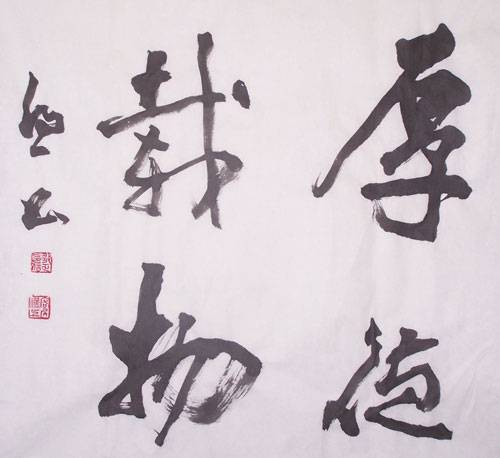 厚德
载物
山